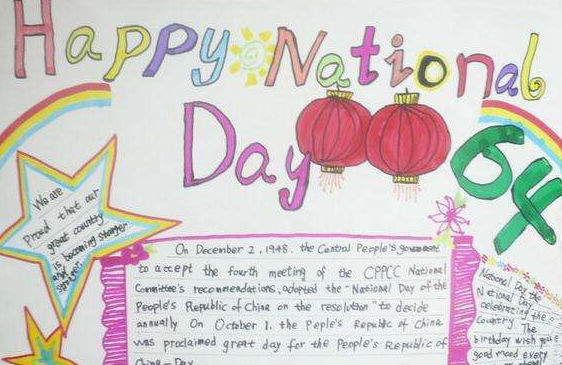 Happy National
Day
64
We are
proud that our
great country
is becoming stronger
and
stronger
On December 2, 1948. the Central People's government
to accept the fourth meeting of the CPPCC National
Committee's recommendations, adopted the "National Day of the
People's Republic of China on the resolution "to decide
annually On October 1. the Peple's Republic of China
was proclaimed great day for the People's Republic of
China — Day
National Day the
National Day
celebrating the
Country The
birthday wish you
good mood every